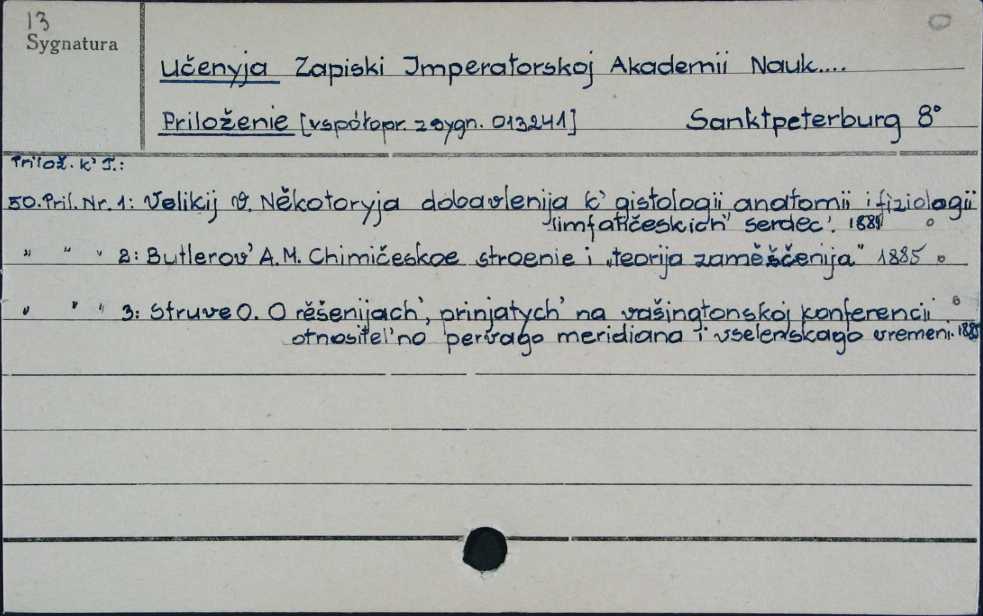 13
Sygnatura
Učenyja Zapiski Imperatorskoj Akademii Nauk....
Priloženie [współopr. z sygn. 013241] Sanktpeterburg 8°
Prilož. k' T.:
50. Pril. Nr. 1: Velikij V. Někotoryja dobavlenija k' gistologii anatomii i fiziologii
limfatičeskich' serdec'. 1885
" " " 2: Butlerov' A.M. Chimičeskoe stroenie i „teorija zaměščenija" 1885
" " " 3: Struve O. O rěšenijach', prinjatych' na vašingtonskoj konferencii
otnositel'no pervago meridiana i vselenskago vremeni. 1885